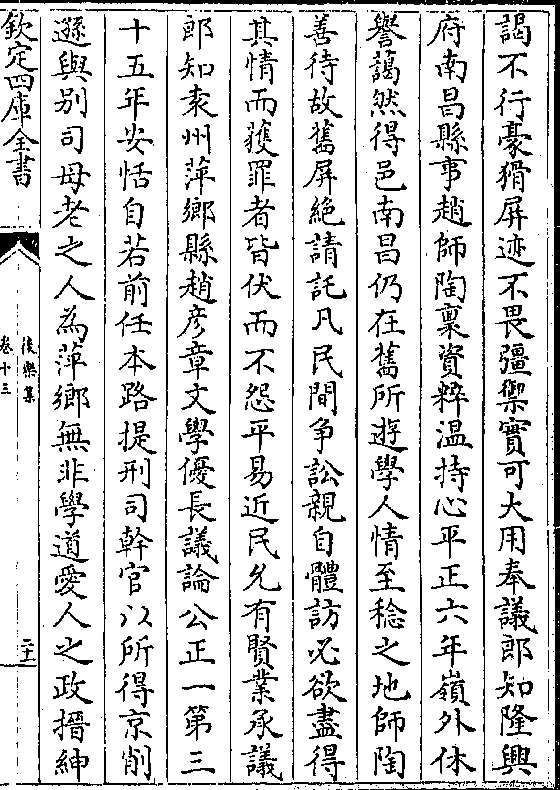 謁不行豪猾屏迹不畏彊禦實可大用奉議郎知隆興
府南昌縣事趙師陶稟資粹温持心平正六年嶺外休
譽藹然得邑南昌仍在舊所遊學人情至稔之地師陶
善待故舊屏絶請託凡民間爭訟親自體訪必欲盡得
其情而獲罪者皆伏而不怨平易近民允有賢業承議
郎知袁州萍鄉縣趙彦章文學優長議論公正一第三
十五年安恬自若前任本路提刑司幹官以所得京削
遜與别司母老之人為萍鄉無非學道愛人之政搢紳
欽定四庫全書
後樂集
卷十三
二十二